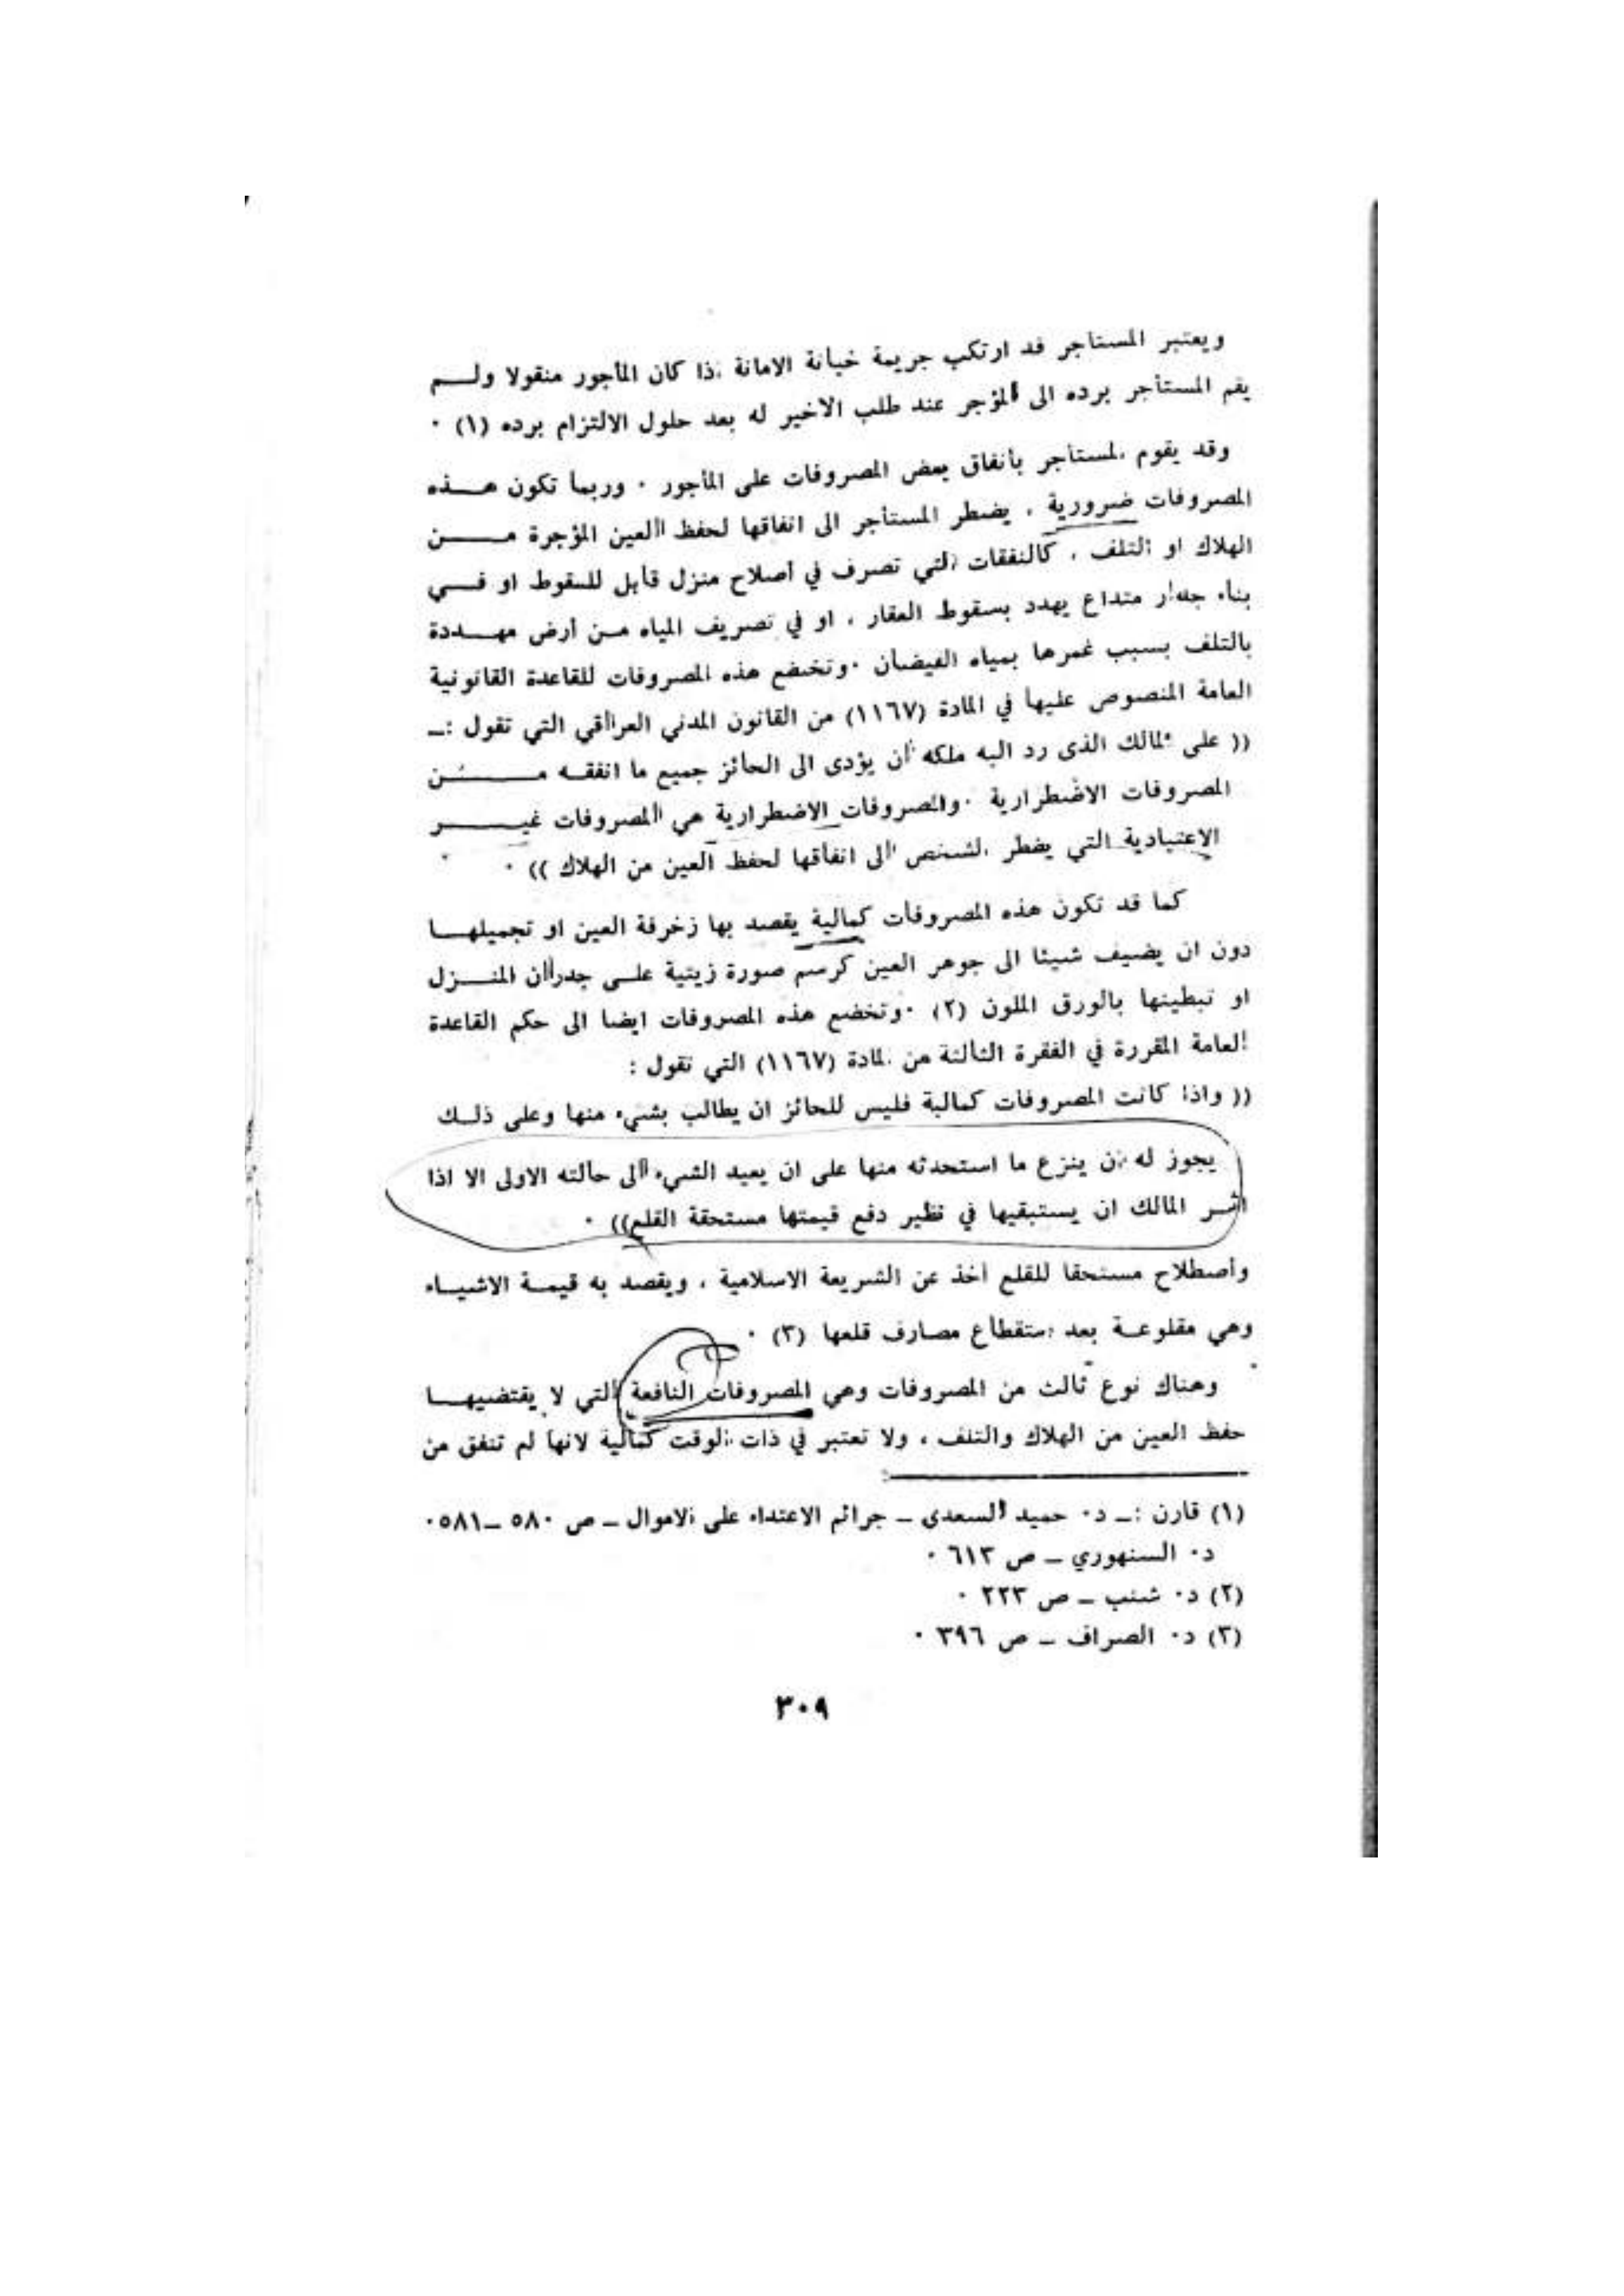 ويعتبر المستأجر قد ارتكب جريمة خيانة الامانة اذا كان المأجور منقولا ولم
يقم المستأجر برده الى المؤجر عند طلب الاخير له بعد حلول الالتزام برده (١) ٠
وقد يقوم المستأجر بأنفاق بعض المصروفات على المأجور ٠ وربما تكون هذه
المصروفات ضرورية ، يضطر المستأجر الى انفاقها لحفظ العين المؤجرة من
الهلاك او التلف ، كالنفقات التي تصرف في أصلاح منزل قابل للسقوط او في
بناء جدار متداع يهدد بسقوط العقار ، او في تصريف المياه من أرض مهددة
بالتلف بسبب غمرها بمياه الفيضان ٠وتخضع هذه المصروفات للقاعدة القانونية
العامة المنصوص عليها في المادة (١١٦٧) من القانون المدني العراقي التي تقول :ـ
(( على المالك الذى رد اليه ملكه أن يؤدى الى الحائز جميع ما انفقه من
المصروفات الاضطرارية ٠والمصروفات الاضطرارية هي المصروفات غير
الإعتيادية التي يضطر الشخص الى انفاقها لحفظ العين من الهلاك )) ٠
كما قد تكون هذه المصروفات كمالية يقصد بها زخرفة العين او تجميلها
دون ان يضيف شيئا الى جوهر العين كرسم صورة زيتية على جدران المنزل
او تبطينها بالورق الملون (٢) ٠وتخضع هذه المصروفات ايضا الى حكم القاعدة
العامة المقررة في الفقرة الثالثة من المادة (١١٦٧) التي تقول :
(( واذا كانت المصروفات كمالية فليس للحائز ان يطالب بشيء منها وعلى ذلك
يجوز له ان ينزع ما استحدثه منها على ان يعيد الشيء الى حالته الاولى الا اذا
اثر المالك ان يستبقيها في نظير دفع قيمتها مستحقة القلع)) ٠
وأصطلاح مستحقا للقلع أخذ عن الشريعة الاسلامية ، ويقصد به قيمة الاشياء
وهي مقلوعة بعد استقطاع مصارف قلعها (٣) ٠
وهناك نوع ثالث من المصروفات وهي المصروفات النافعة التي لا يقتضيها
حفظ العين من الهلاك والتلف ، ولا تعتبر في ذات الوقت كمالية لانها لم تنفق من
(١) قارن :ـ د٠ حميد السعدى ـ جرائم الاعتداء على الاموال ـ ص ٥٨٠ ـ٥٨١٠
د٠ السنهوري ـ ص ٦١٣ ٠
(٢) د٠ شنب ـ ص ٢٢٣ ٠
(٣) د٠ الصراف ـ ص ٣٩٦ ٠
٣٠٩